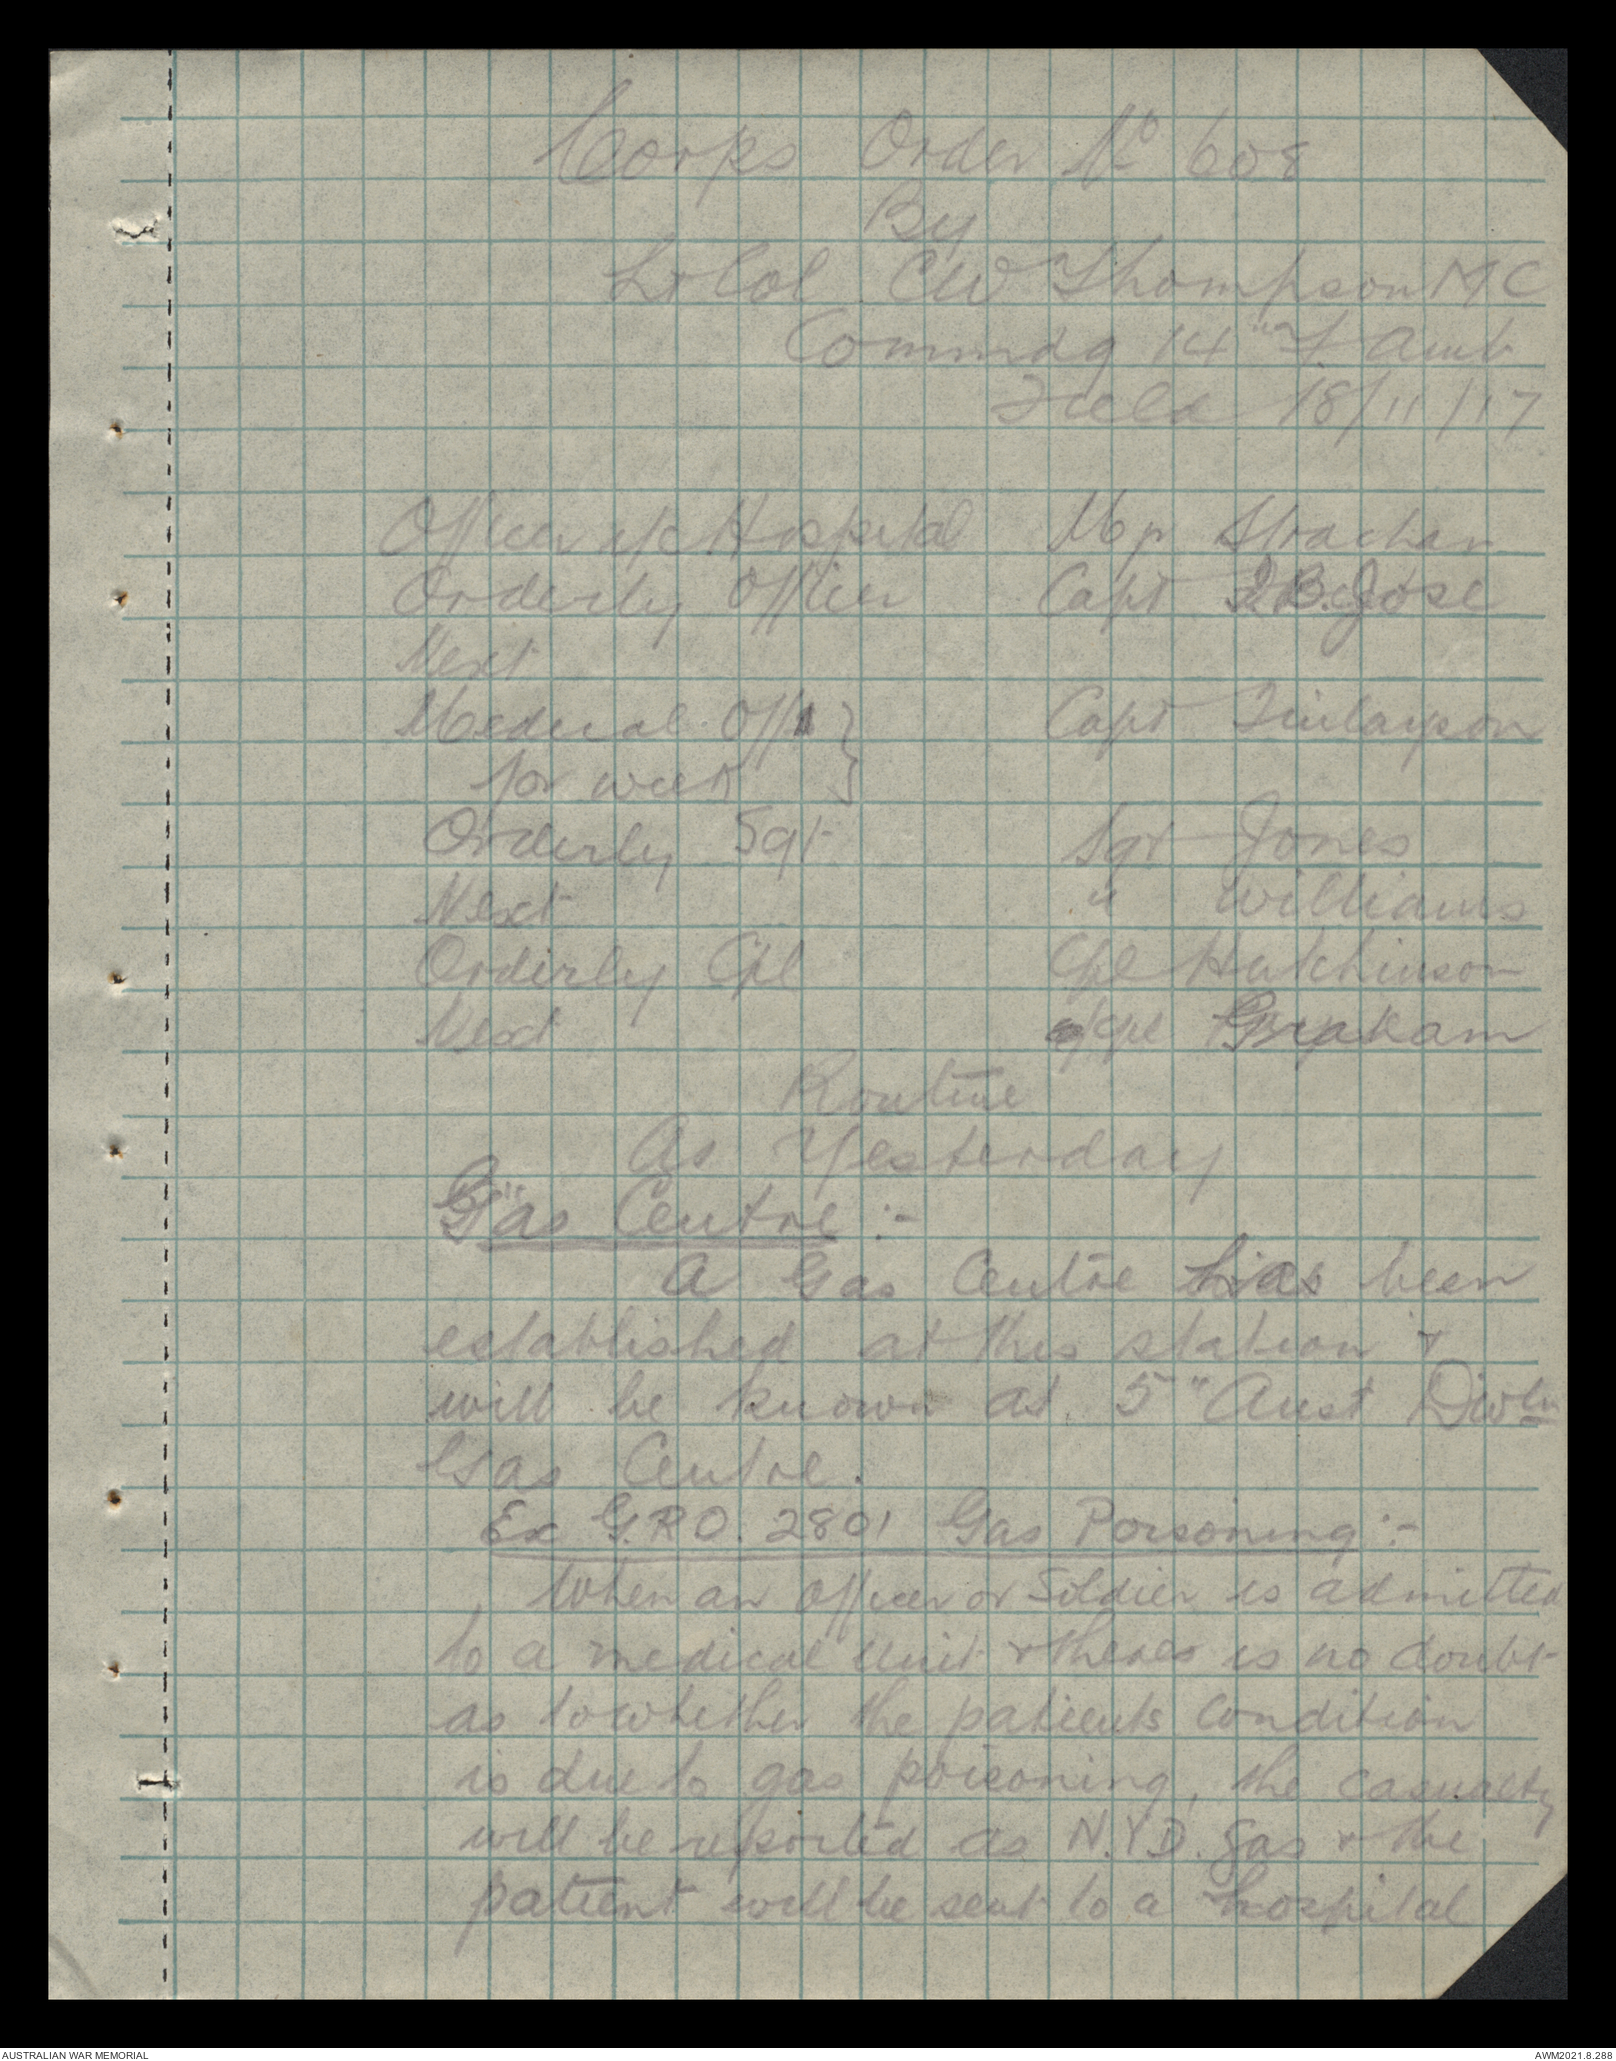 Corps Order No 608
By
Lt Col CW Thompson MC
Commdg 14" F. Amb
Field 18/11/17
Officer i/c Hospital Mjr Strachan
Orderly Officer Capt I.B. Jose
Next
Medical Off } Capt Finlayson
for week
Orderly Sgt Sgt Jones
Next " Williams
Orderly Cpl Cpl Hutchinson
Next Cpl Graham
Routine
As Yesterday
Gas Centre :-
A Gas Centre has been
established at this station &
will be known as 5" Aust Divln
Gas Centre.
Ex G.R.O. 2801 Gas Poisoning :-
When an Officer or Soldier is admitted
to a medical unit & theres is no doubt
as to whether the patients condition
is due to gas poisoning, the casualty
will be reported as N.Y.D. gas & the
patient will be sent to a hospital
AUSTRALIAN WAR MEMORIAL
AWM2021.8.288